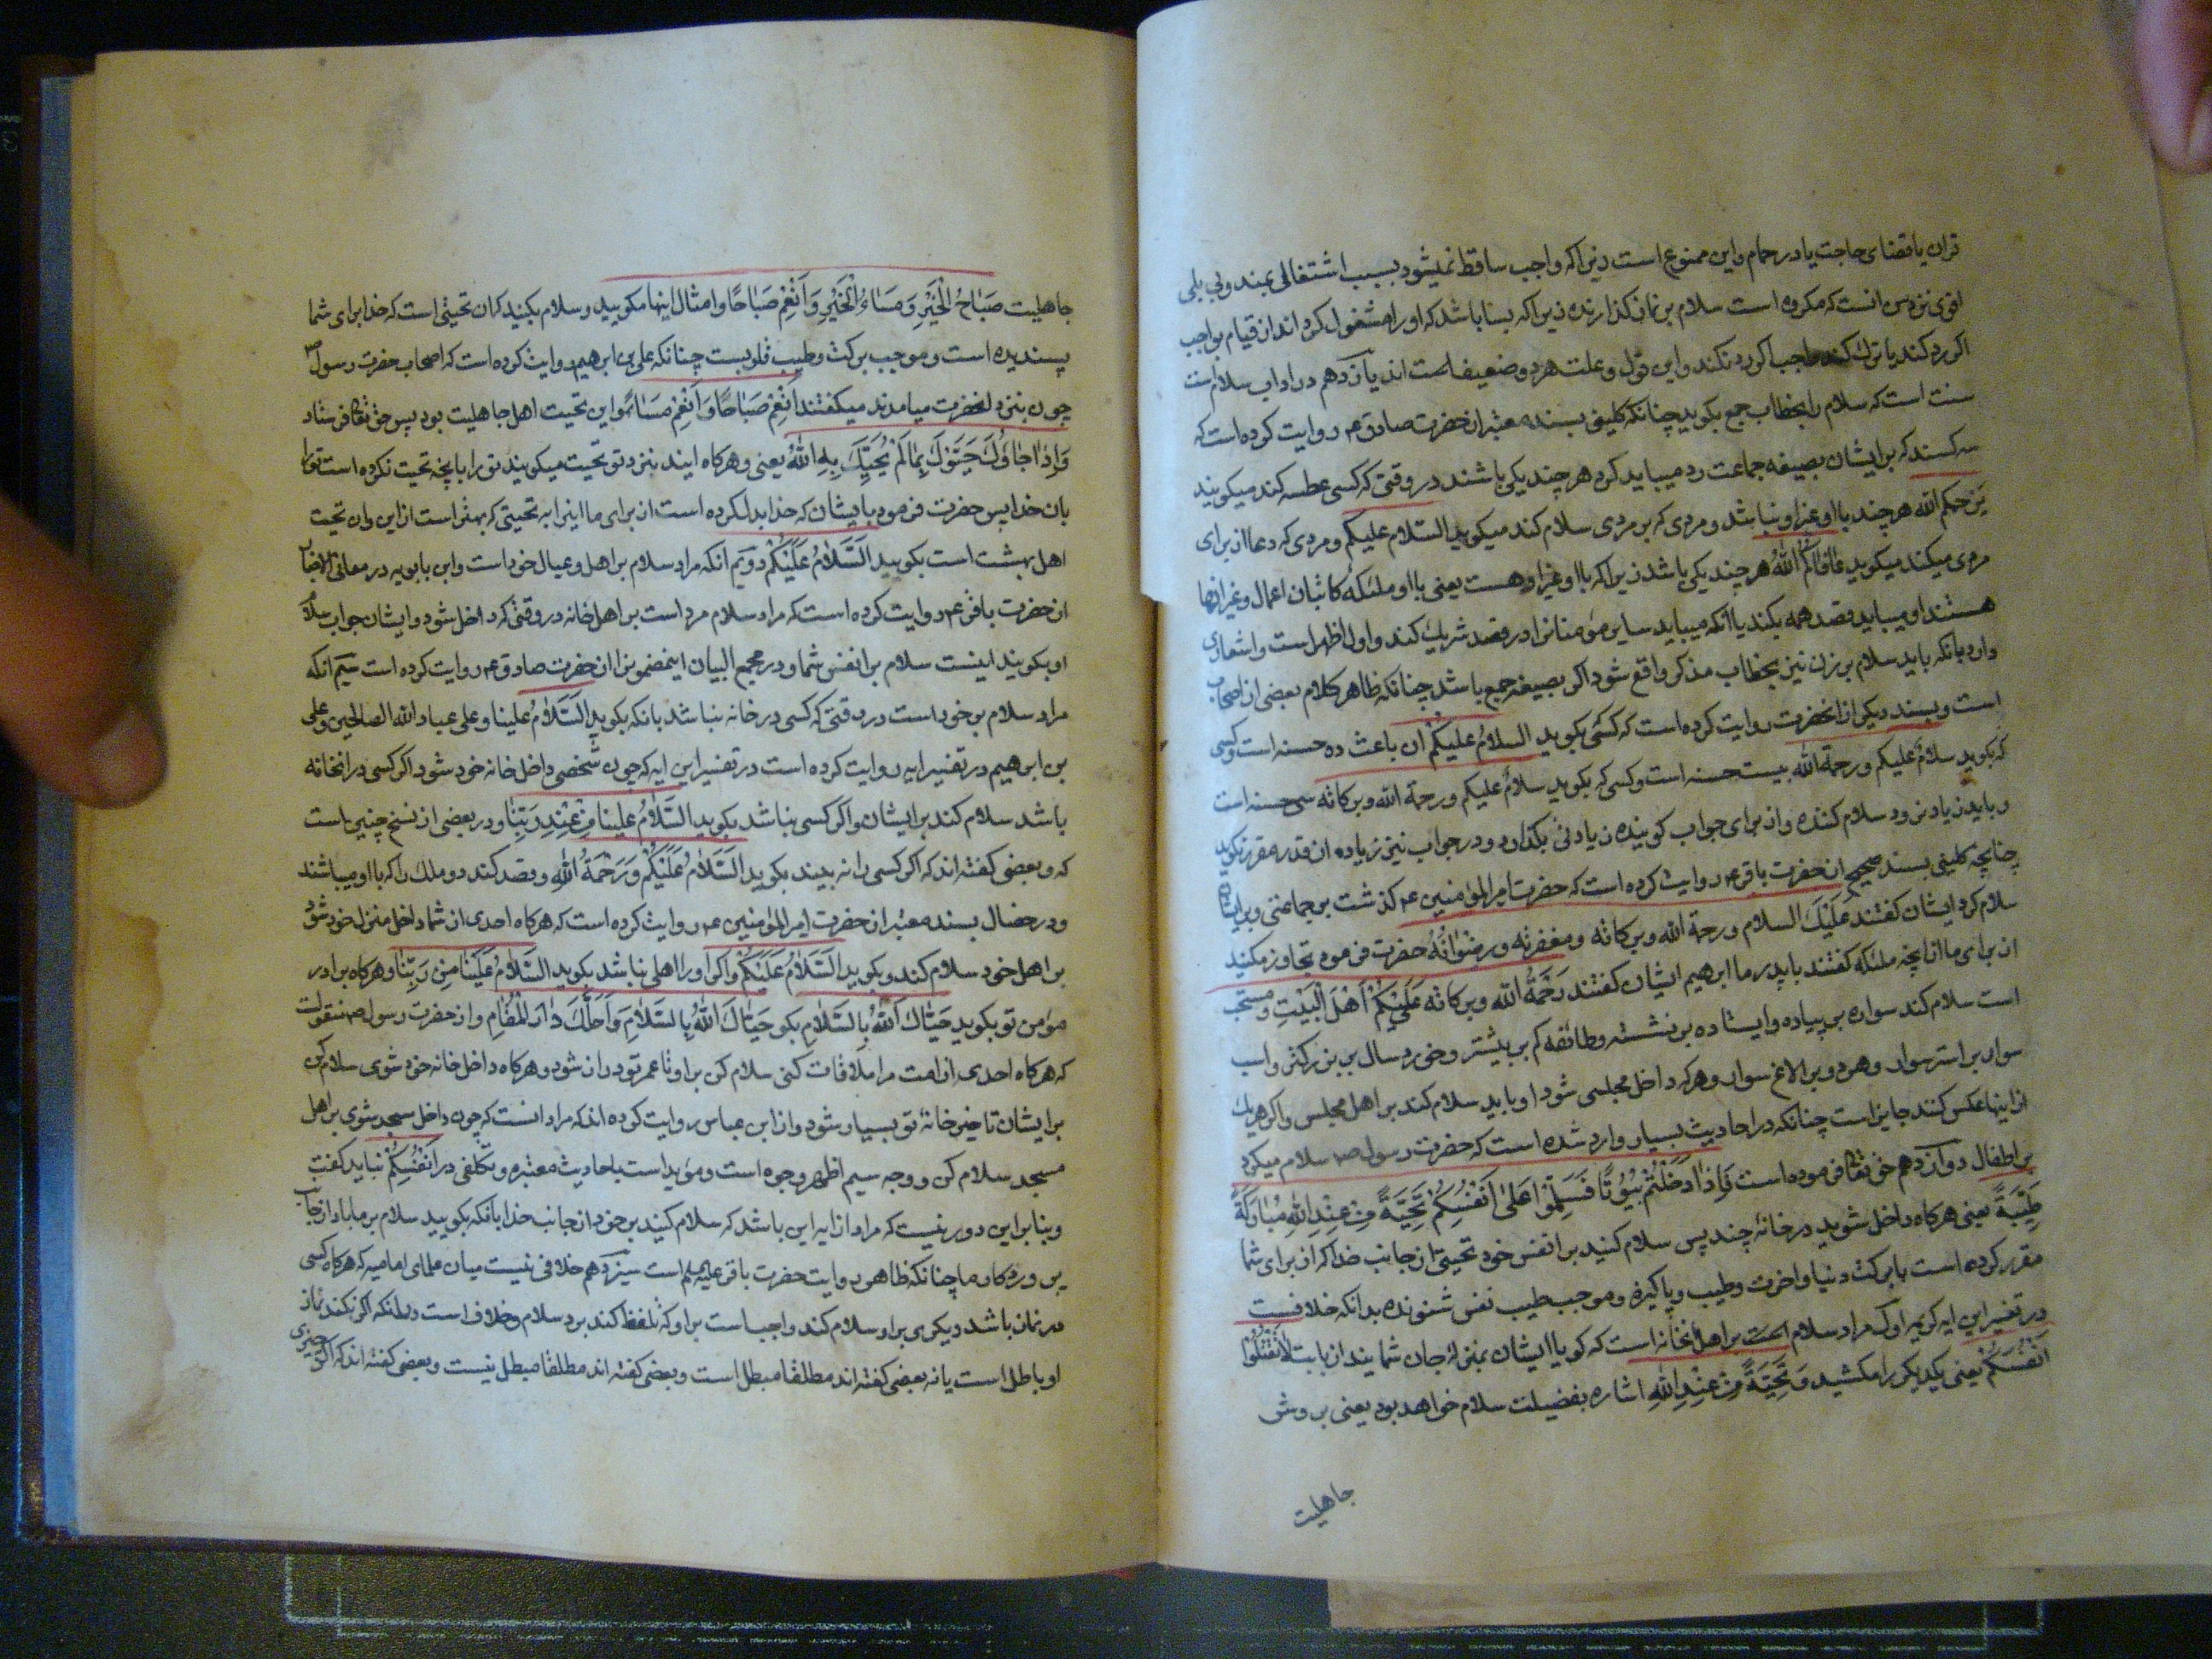 قران یا قضای حاجت یا در حمام و این ممنوع است زیرا که واجب ساقط نمیشود بسبب اشتغالی بمندوبی بلی
اقوی نزد من انست که مکروه است سلام بر نماز کذارنده زیرا که بسا باشد که او را مشغول کرداند از قیام بواجب
اکر رد کند یا ترک کند واجب اکر رد نکند و این قول و علت هر دو ضعیف است اند یازدهم در اداب سلام است
سنت است که سلام را بخطاب جمع بکوید چنانکه کلینی بسند معتبر از حضرت صادق ع روایت کرده است که
سه کسند که بر ایشان بصیغه جماعت رد میباید کرد هر چند یکی باشند در وقتی که کسی عطسه کند میکویند
یرحمکم الله هر چند با او غیر او نباشد و مردی که بر مردی سلام کند میکوید السلام علیکم و مردی که دعا از برای
مردی میکند میکوید عافاکم الله هر چند یکی باشد زیرا که با او غیر او هست یعنی با او ملئکه کاتبان اعمال و غیر انها
هستند او میباید قصد همه بکند یا انکه میباید سایر مؤمنانرا در قصد شریک کند و اول اظهر است و اشعاری
دارد بانکه باید سلام بر زن نیز بخطاب مذکر واقع شود اکر بصیغه جمع باشد چنانکه ظاهر کلام بعضی از اصحاب
است و بسند دیکر از انحضرت روایت کرده است که کسی بکوید السلام علیکم ان باعث ده حسنه است و کسی
که بکوید سلام علیکم و رحمة الله بیست حسنه است و کسی که بکوید سلام علیکم و رحمة الله و برکاته سی حسنه است
و باید زیاد نرود سلام کننده و از برای جواب کوینده زیادتی بکذارد و در جواب نیز زیاده از قدر مقرر نکوید
چنانچه کلینی بسند صحیح از حضرت باقر ع روایت کرده است که حضرت امیر المؤمنین ع کذشت بر جماعتی و بر ایشان
سلام کرد ایشان کفتند علیک السلام و رحمة الله و برکاته و مغفرته و رضوانه حضرت فرمود تجاوز مکنید
از برای ما از انچه ملئکه کفتند با پدر ما ابرهیم ایشان کفتند رحمة الله و برکاته علیکم اهل البیت و مستحب
است سلام کند سواره بر پیاده و ایستاده بر نشسته و طائفه کم بر بیشتر و خورد سال بر بزرکتر و اسب
سوار بر استر سوار و هر دو بر الاغ سوار و هر که داخل مجلسی شود او باید سلام کند بر اهل مجلس و اکر هر یک
از اینها عکس کنند جایز است چنانکه در احادیث بسیار وارد شده است که حضرت رسول ص سلام میکرد
بر اطفال دوازدهم حق تعالی فرموده است فَاِذَا دَخَلْتُمْ بُیُوتًا فَسَلِّمُوا عَلیٰ اَنْفُسِکُمْ تَحِیَّةً مِنْ عِنْدِ اللهِ مُبَارَکَةً
طَیِّبَةً یعنی هر کاه داخل شوید در خانهٔ چند پس سلام کنید بر انفس خود تحیتی از جانب خدا که از برای شما
مقرر کرده است با برکت دنیا و اخرت و طیب و پاکیزه و موجب طیب نفس شنونده بدانکه خلافست
در تفسیر این ایه کریمه اول مراد سلام است بر اهل انخانه است که کویا ایشان بمنزلهٔ جان شمایند از بابت لَا تَقْتُلُوا
اَنْفُسَکُمْ یعنی یکدیکر را مکشید و تَحِیَّةً مِنْ عِنْدِ اللهِ اشاره بفضیلت سلام خواهد بود یعنی بروش
جاهلیت
جاهلیت صَبَاحُ الْخَیْرِ وَ مَسَاءُ الْخَیْرِ وَ اَنْعِمْ صَبَاحًا و امثال اینها مکویید و سلام بکنید که ان تحیتی است که خدا برای شما
پسندیده است و موجب برکت و طیب قلوبست چنانکه علی بن ابرهیم روایت کرده است که اصحاب حضرت رسول ص
چون بنزد انحضرت میامدند میکفتند اَنْعِمْ صَبَاحًا وَ اَنْعِمْ مَسَاءً و این تحیت اهل جاهلیت بود پس حق تعالی فرستاد
وَ اِذَا جَاؤُکَ حَیَّوْکَ بِمَا لَمْ یُحَیِّکَ بِهِ اللهُ یعنی و هر کاه ایند بنزد تو تحیت میکویند تو را بانچه تحیت نکرده است تو را
بان خدا پس حضرت فرمود بایشان که خدا بدل کرده است از برای ما اینرا به تحیتی که بهتر است از این و ان تحیت
اهل بهشت است بکویید اَلسَّلَامُ عَلَیْکُمْ دویم انکه مراد سلام بر اهل و عیال خود است و ابن بابویه در معانی الاخبار
از حضرت باقر ع روایت کرده است که مراد سلام مرد است بر اهل خانه در وقتی که داخل شود و ایشان جواب سلام
او بکویند اینست سلام بر انفس شما و در مجمع البیان اینمضمونرا از حضرت صادق ع روایت کرده است سیم انکه
مراد سلام بر خود است در وقتی که کسی در خانه نباشد بانکه بکوید اَلسَّلَامُ علینا و علی عباد الله الصالحین و علی
بن ابرهیم در تفسیر ایه روایت کرده است در تفسیر این ایه که چون شخصی داخل خانه خود شود اکر کسی در انخانه
باشد سلام کند بر ایشان و اکر کسی نباشد بکوید السَّلَامُ علینا مِنْ عِنْدِ رَبِّنَا و در بعضی از نسخ چنین است
که و بعضی کفته اند که اکر کسی را نه بیند بکوید اَلسَّلَامُ عَلَیْکُمْ وَ رَحْمَةُ اللهِ و قصد کند دو ملک را که با او میباشند
و در خصال بسند معتبر از حضرت امیر المؤمنین ع روایت کرده است که هر کاه احدی از شما داخل منزل خود شود
بر اهل خود سلام کند و بکوید اَلسَّلَامُ عَلَیْکُمْ و اکر او را اهلی نباشد بکوید السَّلَامُ عَلَیْنَا مِنْ رَبِّنَا و هر کاه برادر
مؤمن تو بکوید حَیَّاکَ اللهُ بِالسَّلَامِ بکو حَیَّاکَ اللهُ بِالسَّلَامِ وَ اَحَلَّکَ دَارَ الْمُقَامِ و از حضرت رسول ص منقولست
که هر کاه احدی از امت مرا ملاقات کنی سلام کن بر او تا عمر تو دراز شود و هر کاه داخل خانه خود شوی سلام کن
بر ایشان تا خیر خانهٔ تو بسیار شود و از ابن عباس روایت کرده اند که مراد انست که چون داخل مسجد شوی بر اهل
مسجد سلام کن و وجه سیم اظهر وجوه است و مؤید است باحادیث معتبره و تکلفی در اَنْفُسِکُمْ نباید کفت
و بنا بر این دور نیست که مراد از ایه این باشد که سلام کنید بر خود از جانب خدا بانکه بکویید سلام بر ما باد از جانب
پروردکار ما چنانکه ظاهر روایت حضرت باقر علیه السلم است سیزدهم خلافی نیست میان علمای امامیه که هر کاه کسی
در نماز باشد دیکری بر او سلام کند واجب است بر او که تلفظ کند برد سلام و خلاف است در انکه اکر نکند نماز
او باطل است یا نه بعضی کفته اند مطلقا مبطل است و بعضی کفته اند مطلقا مبطل نیست و بعضی کفته اند که اکر چیزی